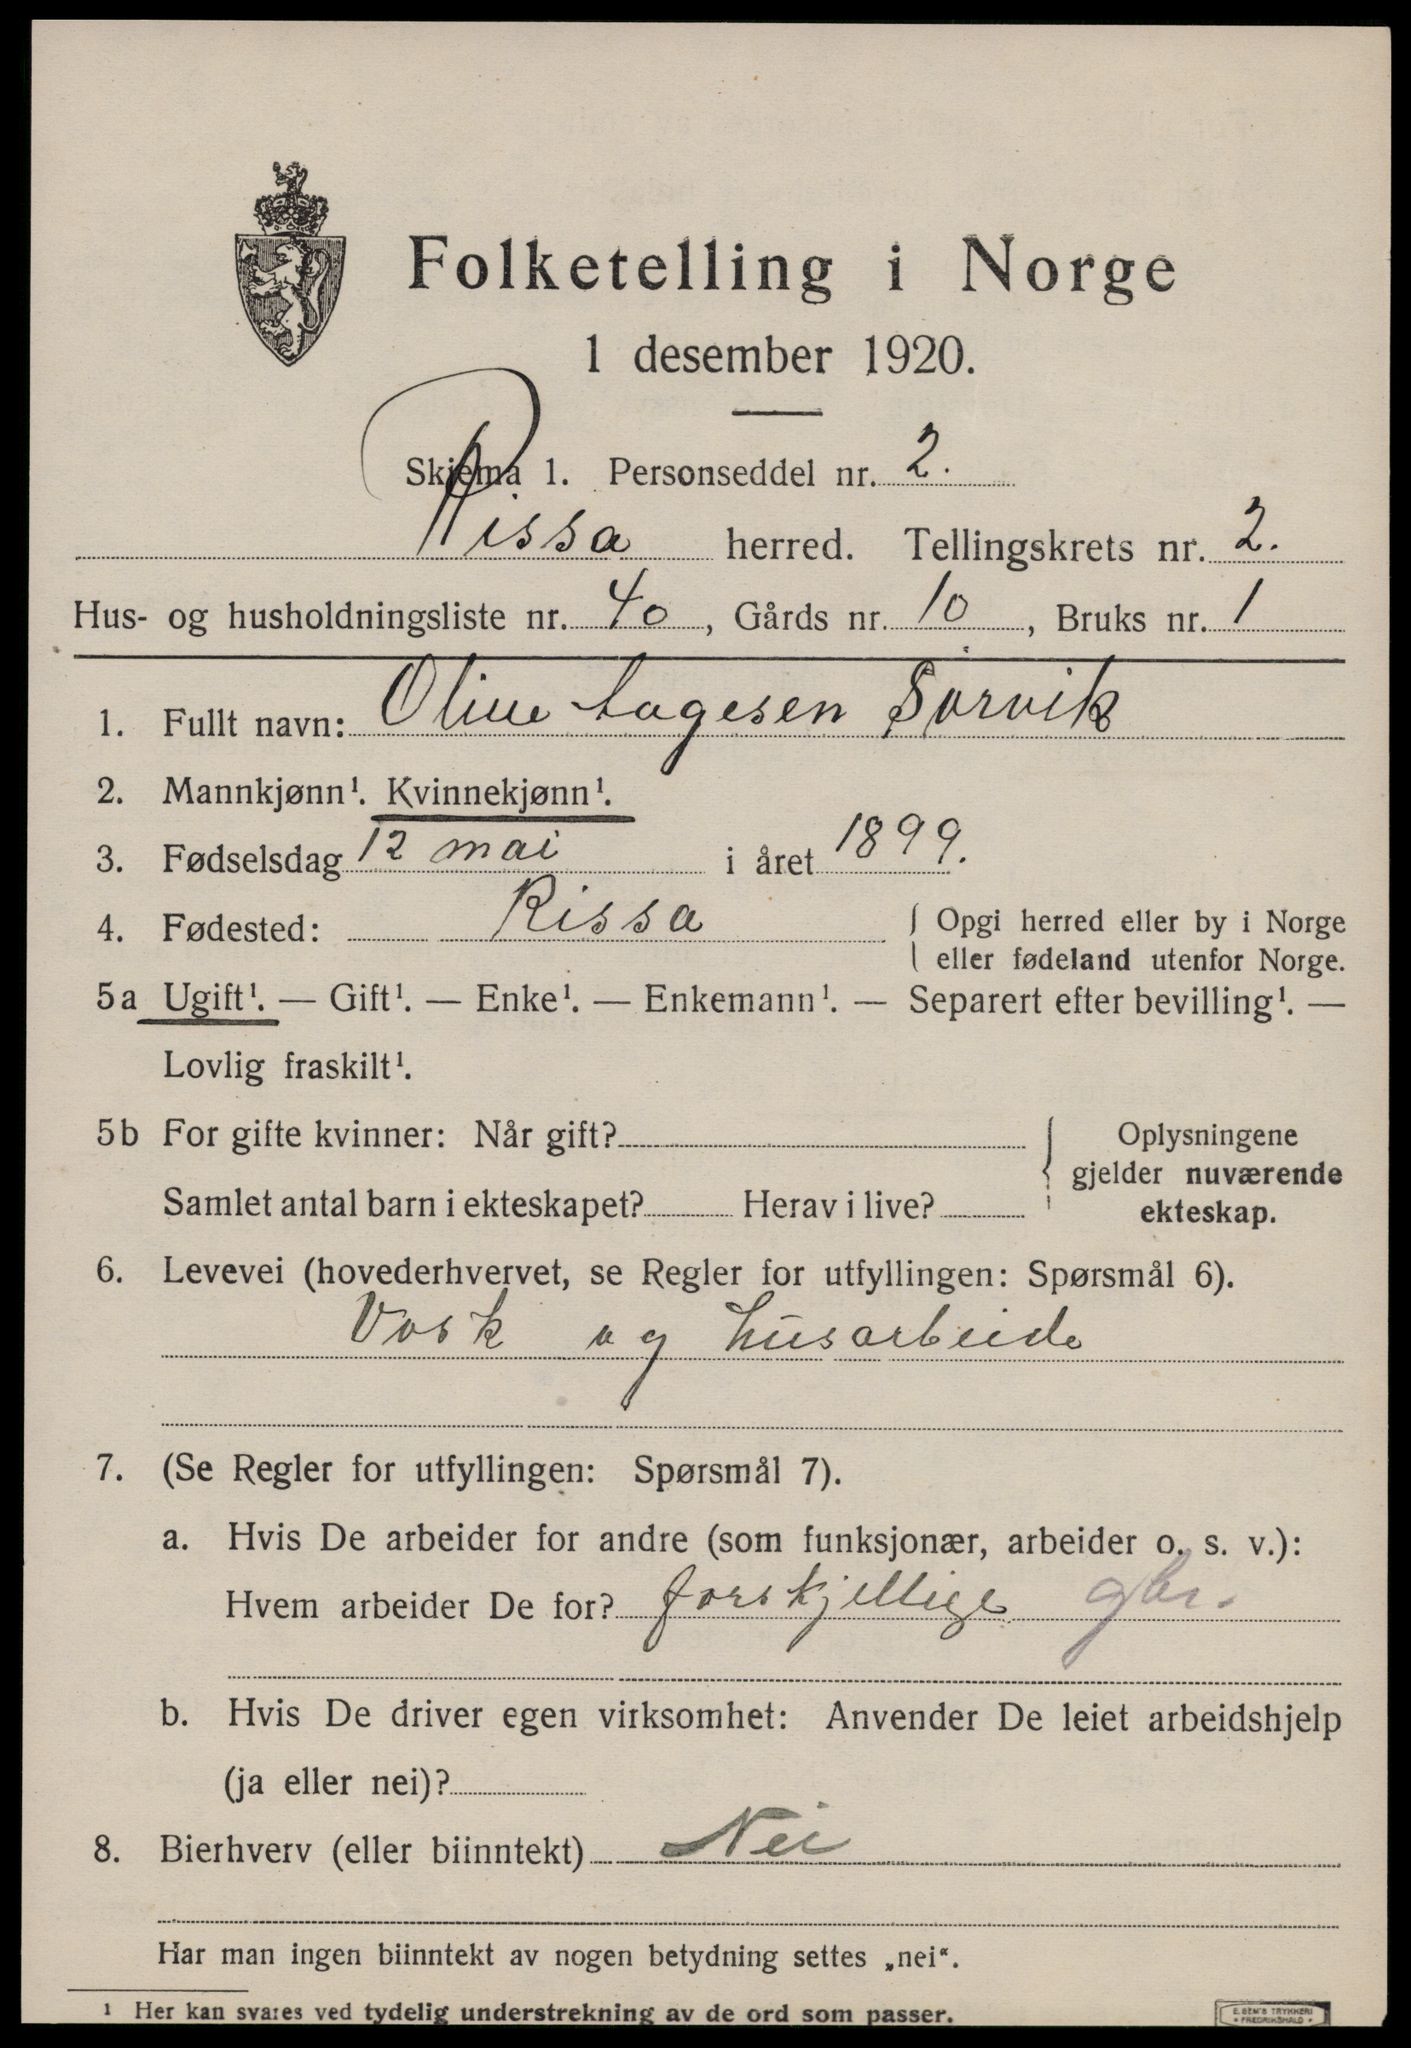 Folketelling i Norge
1 desember 1920.
Skjema 1. Personseddel nr. 2.
Rissa herred. Tellingskrets nr. 2.
Hus- og husholdningsliste nr. 40, Gårds nr. 10, Bruks nr. 1
1. Fullt navn: Oline Aagesen Sørvik
2. Mannkjønn¹. Kvinnekjønn¹.
3. Fødselsdag 12 mai i året 1899.
4. Fødested: Rissa { Opgi herred eller by i Norge
eller fødeland utenfor Norge.
5a Ugift¹. — Gift¹. — Enke¹. — Enkemann¹. — Separert efter bevilling¹. —
Lovlig fraskilt¹.
5b For gifte kvinner: Når gift?
Samlet antal barn i ekteskapet? Herav i live?
Oplysningene
gjelder nuværende
ekteskap.
6. Levevei (hovederhvervet, se Regler for utfyllingen: Spørsmål 6).
Vask og husarbeide
7. (Se Regler for utfyllingen: Spørsmål 7).
a. Hvis De arbeider for andre (som funksjonær, arbeider o. s. v.):
Hvem arbeider De for? forskjellige gbr.
b. Hvis De driver egen virksomhet: Anvender De leiet arbeidshjelp
(ja eller nei)?
8. Bierhverv (eller biinntekt) Nei
Har man ingen biinntekt av nogen betydning settes „nei“.
1 Her kan svares ved tydelig understrekning av de ord som passer.
E. SEM'S TRYKKERI
FREDRIKSHALD